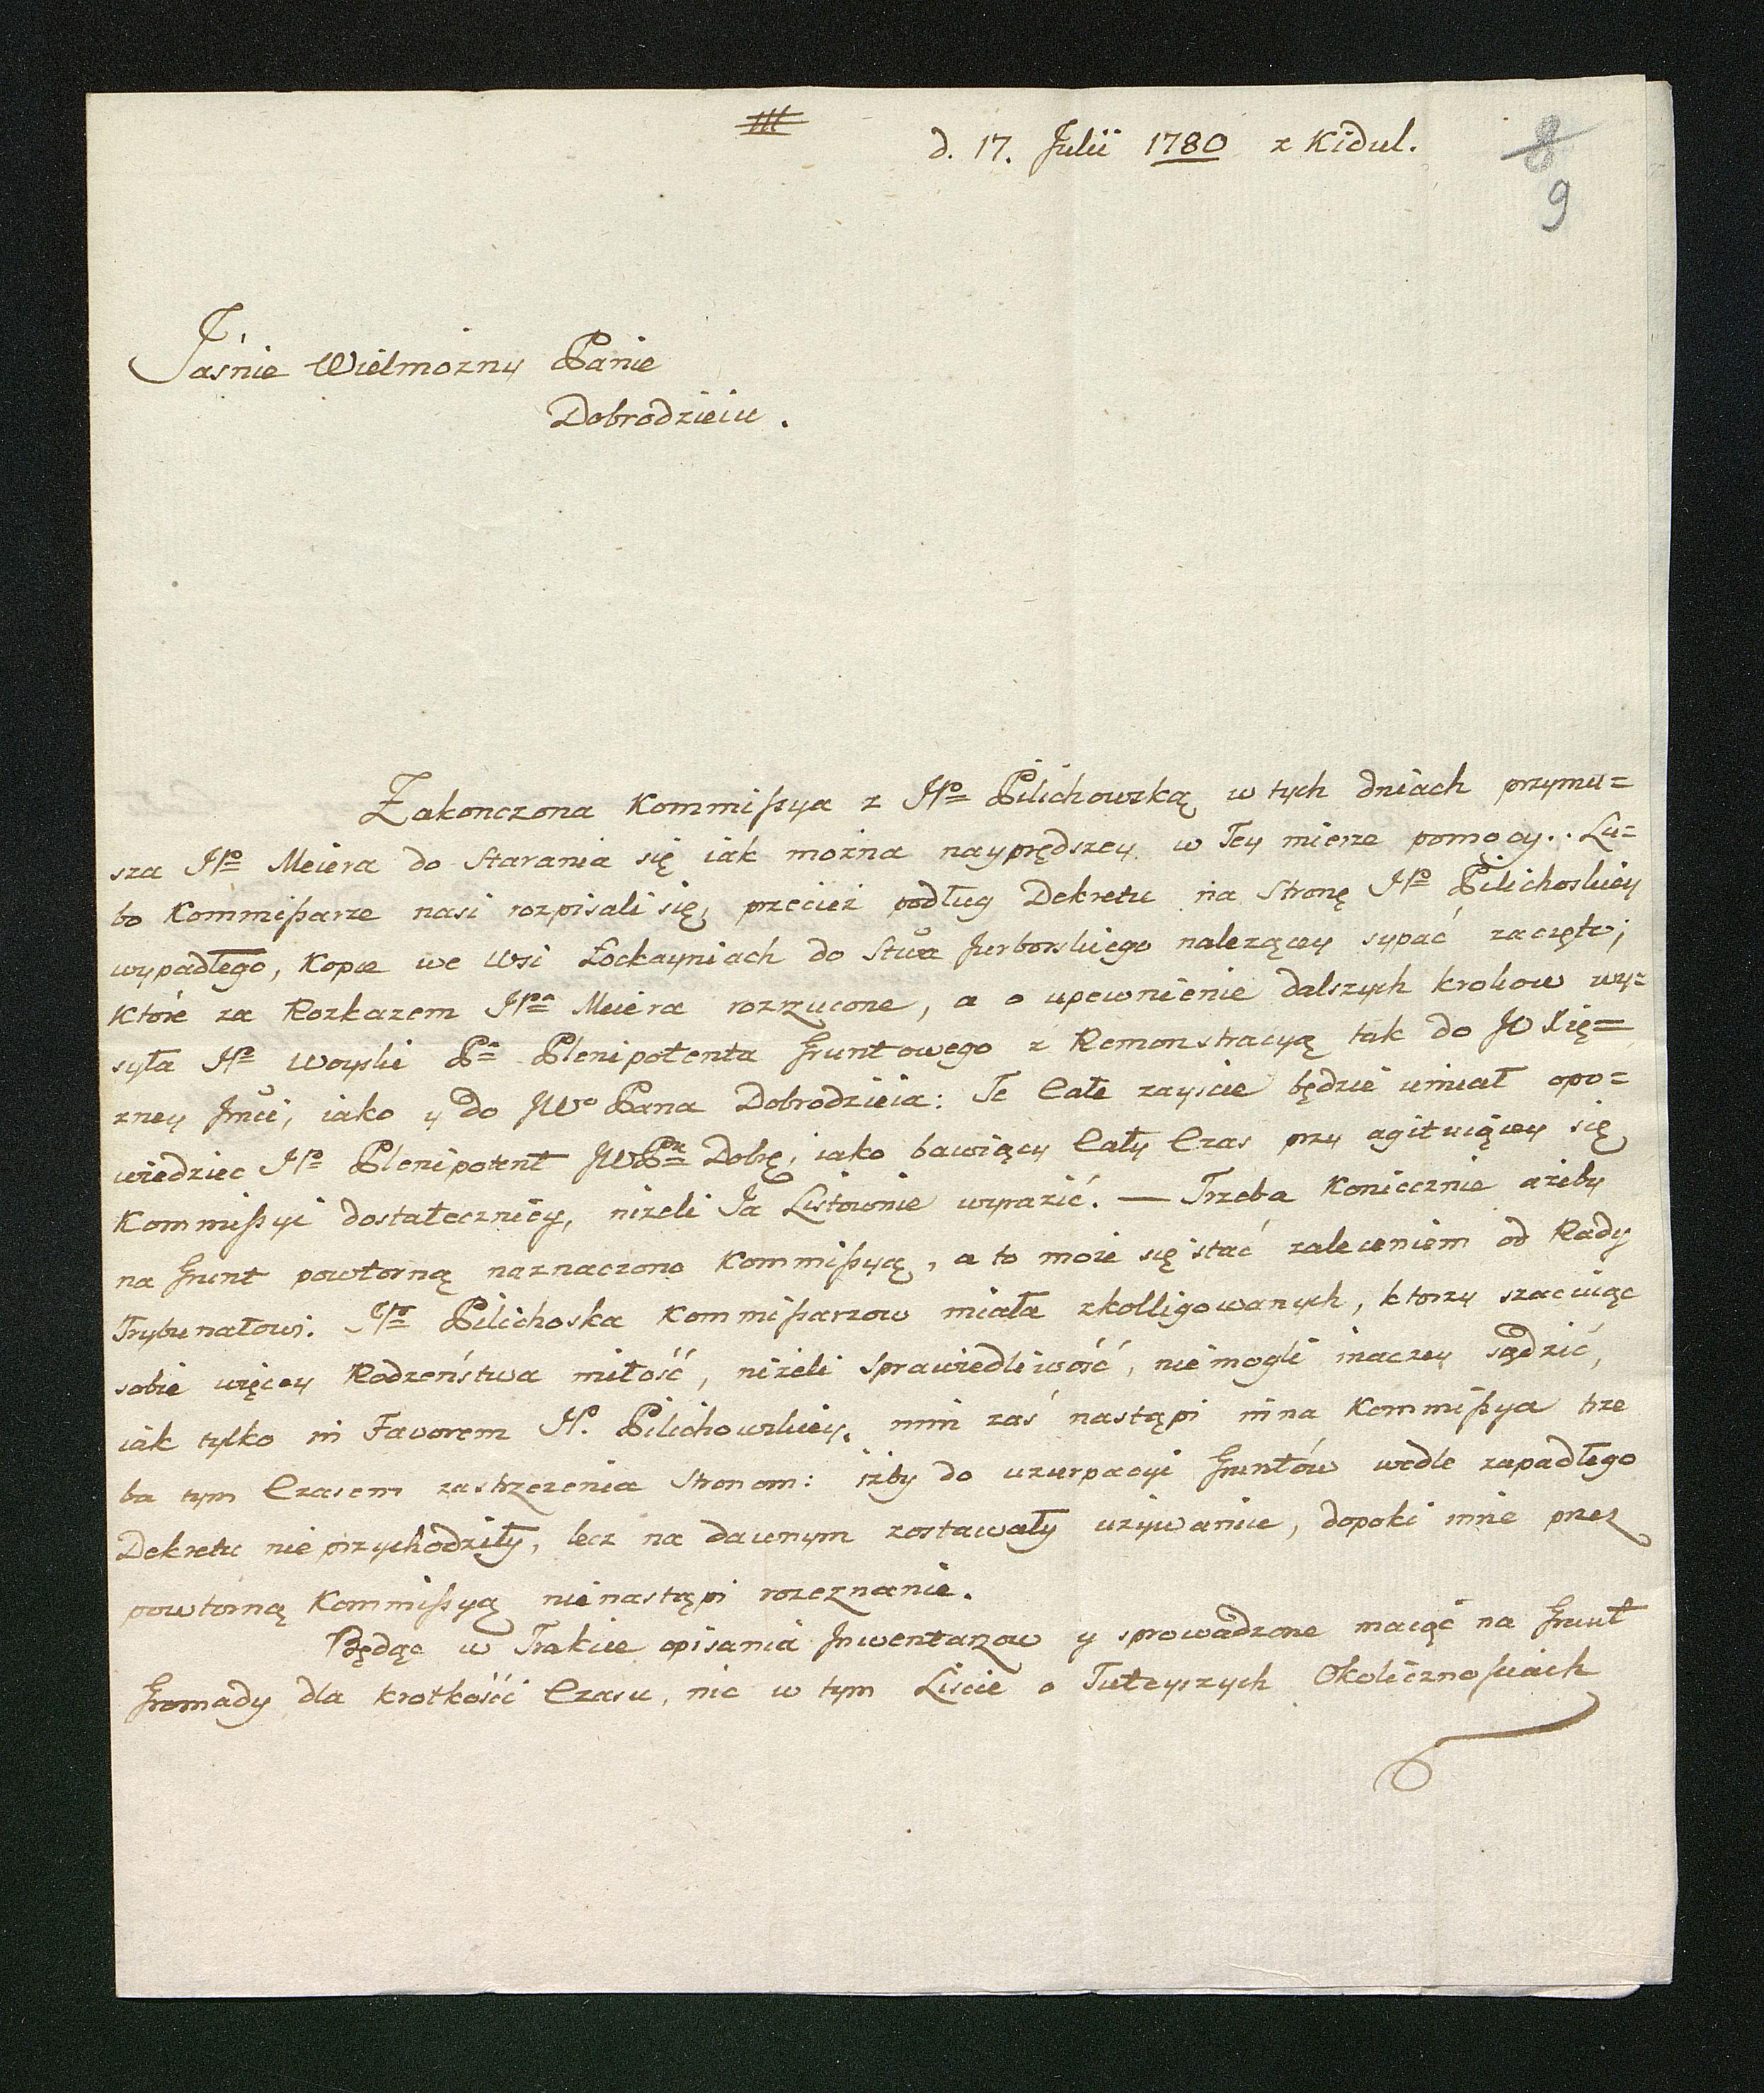 d. 17. Julii 1780 z Kidul.
8
9
Jaśnie Wielmozny Panie
Dobrodzieiu.
Zakonczona Kommißya z JP Pilichowską w tych dniach przymu=
sza JP Meiera do Starania się iak mozna nayprędszey w Tey mierze pomocy. Lu=
bo Kommißarze nasi rozpisali się, przecież podług Dekretu na Stronę JP Pilichoskiey
wypadłego, Kopce we Wsi Łockayniach do Stwa Jurborskiego nalezącey sypać zaczęto;
Które za Rozkazem JP Meiera rozrzucone, a o upewnienie dalszych krokow wy=
syła JP Woyski Pa Plenipotenta Gruntowego z Remonstracyą tak do JO Xię=
zney Jmci, iako y do JWo Pana Dobrodzieia: Te Całe zayscie będzie umiał opo=
wiedziec JP Plenipotent JWPa Dobę, iako bawiący Cały Czas przy agituiącey się
Kommißyi dostateczniey, nizeli Ja Listownie wyrazić. — Trzeba Koniecznie azeby
na Grunt powtorną naznaczono Kommißyą, a to może się stać zaleceniem od Rady
Trybunałowi. JP Pilichoska Kommißarzow miała zkolligowanych, ktorzy szacuiąc
sobie więcey Rodzeństwa miłość, niżeli Sprawiedliwość, nie mogli inaczey sądzić,
iak tylko in Favorem JP. Pilichowskiey. nim zaś nastąpi inna Kommißya trze
ba tym Czasem zastrzezenia Stronom: iżby do uzurpacyi Gruntów wedle zapadłego
Dekretu nie przychodziły, lecz na dawnym zostawały uzywaniu, dopoki inne przez
powtorną Kommißyą nie nastąpi rozeznanie.
Będąc w Trakcie opisania Inwentarzow y sprowadzone maiąc na Grunt
Gromady dla krotkości Czasu, nic w tym Liscie o Tuteyszych Okolicznościach